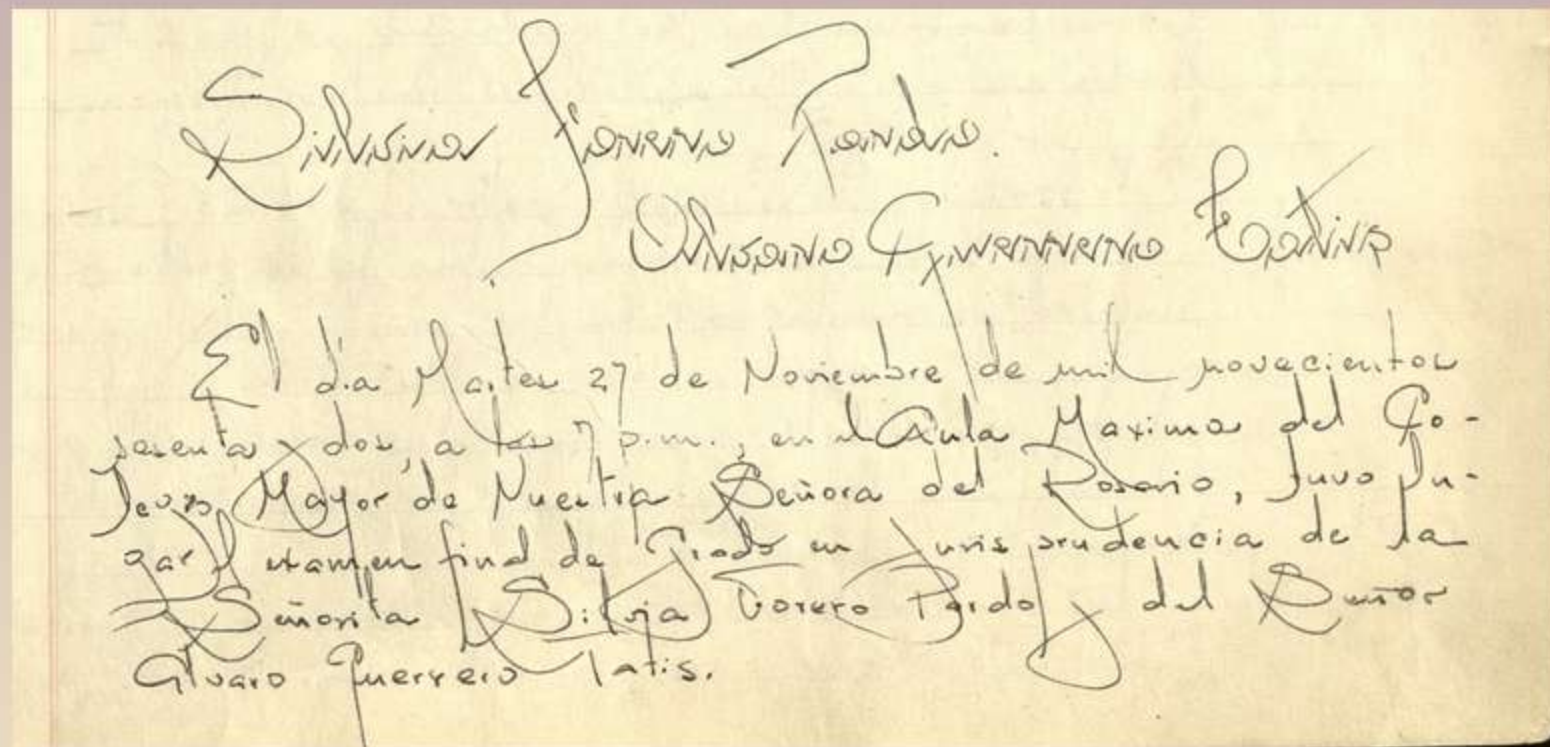 Silvia Forero Pardo.
Alvaro Guerrero Tatis
El dia Martes 27 de Noviembre de mil novecientos
sesenta y dos, a las 7 p.m., en el Aula Maxima del Co-
legio Mayor de Nuestra Señora del Rosario, tuvo lu-
gar el examen final de Grado en Jurisprudencia de la
Señorita Silvia Forero Pardo y del Señor
Alvaro Guerrero Tatis.